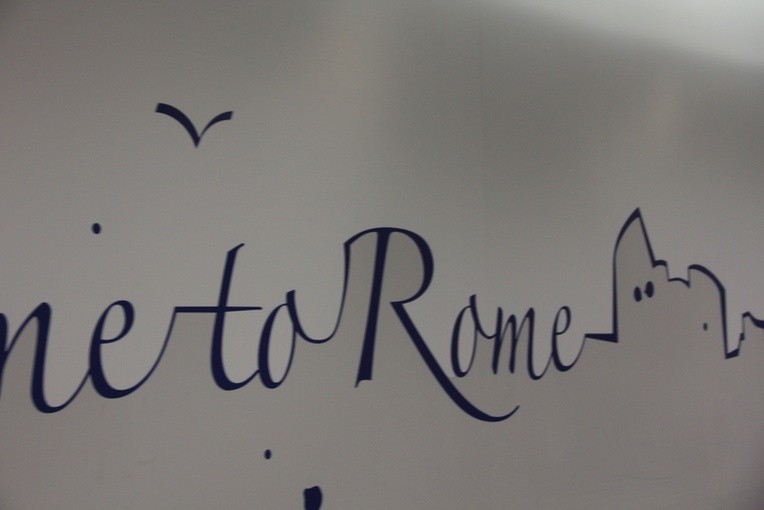 me to Rome